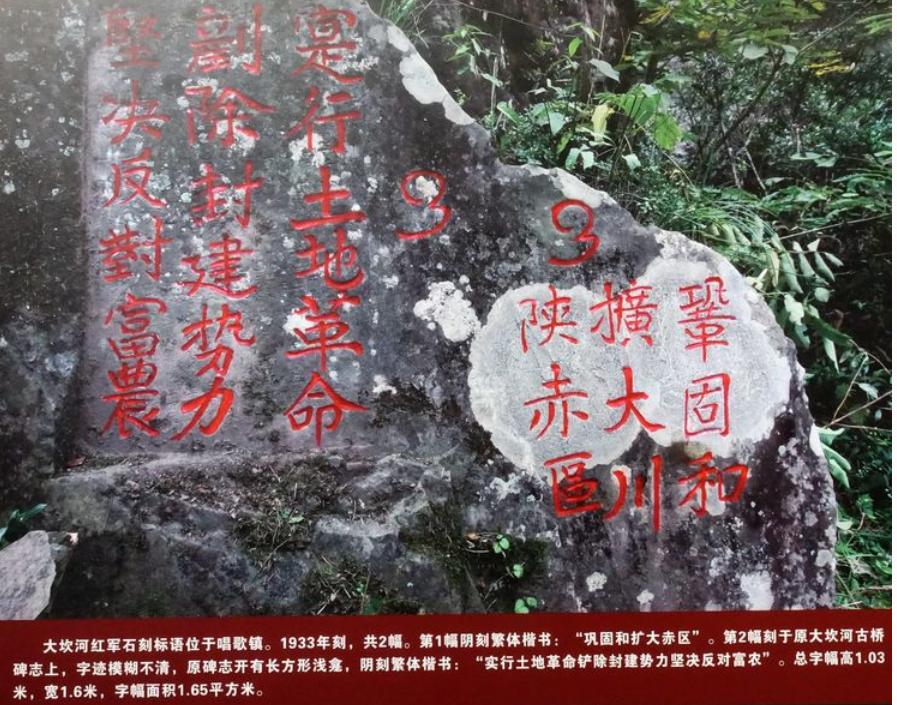 鞏固和
擴大川
陝赤區
寔行土地革命
剷除封建势力
堅决反對富農
大坎河红军石刻标语位于唱歌镇。1933年刻，共2幅。第1幅阴刻繁体楷书：“巩固和扩大赤区”。第2幅刻于原大坎河古桥
碑志上，字迹模糊不清，原碑志开有长方形浅龛，阴刻繁体楷书：“实行土地革命铲除封建势力坚决反对富农”。总字幅高1.03
米，宽1.6米，字幅面积1.65平方米。